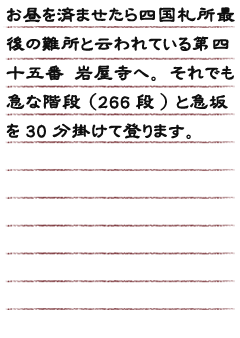 お昼を済ませたら四国札所最
後の難所と云われている第四
十五番 岩屋寺へ。それでも
急な階段（266 段 ）と急坂
を 30 分掛けて登ります。